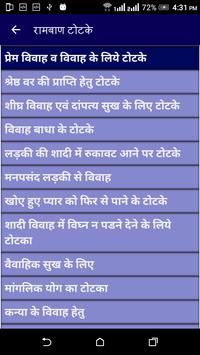 4:31 PM
रामबाण टोटके
प्रेम विवाह व विवाह के लिये टोटके
श्रेष्ठ वर की प्राप्ति हेतु टोटके
शीघ्र विवाह एवं दांपत्य सुख के लिए टोटके
विवाह बाधा के टोटके
लड़की की शादी में रुकावट आने पर टोटके
मनपसंद लड़की से विवाह
खोए हुए प्यार को फिर से पाने के टोटके
शादी विवाह में विघ्न न पडने देने के लिये
टोटका
वैवाहिक सुख के लिए
मांगलिक योग का टोटका
कन्या के विवाह हेतु